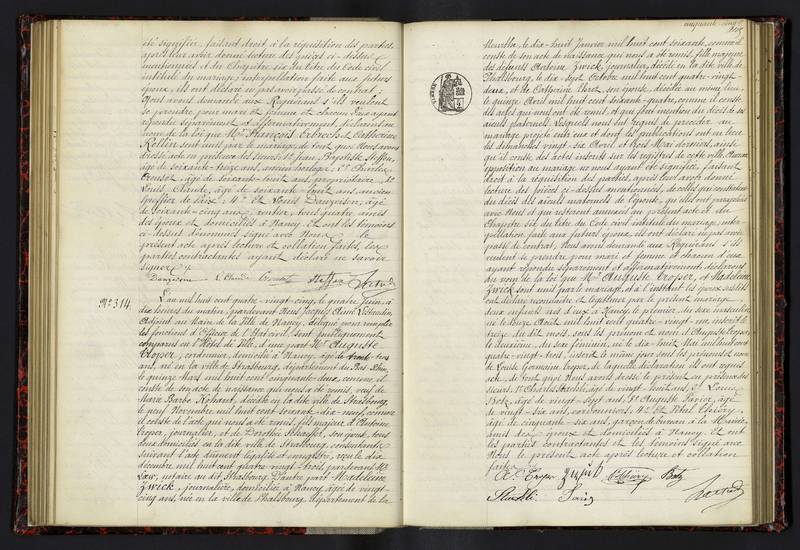 été signifiée, faisant droit à la réquisition des parties,
après leur avoir donné lecture des pièces ci-dessus
mentionnées et du Chapitre six du titre du Code civil
intitulé du mariage; interpellation faite aux futurs
époux, ils ont déclaré ne pas avoir passé de contrat;
Nous avons demandé aux Requérans s'ils veulent
se prendre pour mari et femme et chacun d'eux ayant
répondu séparément et affirmativement, déclarons au
nom de la loi que Mr François Erbrech et Catherine
Rollin sont unis par le mariage, de tout quoi Nous avons
dressé acte en présence des sieurs: 1° Jean Baptiste Steffan,
âgé de soixante-treize ans, ancien horloger; 2°
âgé de soixante-huit ans, propriétaire; 3°
Louis Claude, âgé de soixante-huit ans, ancien
greffier de Paix; 4° et Louis Danzeisen, âgé
de soixante-cinq ans, rentier, tous quatre amis
des époux et domiciliés à Nancy. Et ont les témoins
ci-dessus dénommés signé avec Nous le
présent acte après lecture et collation faites, les
parties contractantes ayant déclaré ne savoir
signer.
Danzeisen L. Claude Steffan
No 314.
L'an mil huit cent quatre-vingt-cinq, le quatre Juin, à
dix heures du matin, pardevant Nous Jacques Aimé
Adjoint au Maire de la Ville de Nancy, délégué pour remplir
les fonctions d'Officier de l'Etat civil sont publiquement
comparus en l'Hôtel de Ville, d'une part Mr Auguste
Troper, cordonnier, domicilié à Nancy, âgé de trente-trois
ans, né en la ville de Strasbourg, département du Bas Rhin,
le quinze Mars mil huit cent cinquante-deux, comme il
conste de son acte de naissance qui nous a été remis, veuf de
Marie Barbe, décédée en la dite ville de Strasbourg,
le neuf Novembre mil huit cent soixante-dix-neuf, comme
il conste de l'acte qui nous a été remis, fils majeur d'Antoine
Troper, journalier, et de Dorothée Schaeffer, son épouse, tous
deux domiciliés en la dite ville de Strasbourg, consentant,
suivant l'acte dûment légalisé et enregistré, reçu le dix
décembre mil huit cent quatre-vingt-trois, pardevant Me
Loew, notaire au dit Strasbourg. D'autre part Madeleine
Zwick, journalière, domiciliée à Nancy, âgée de vingt-
cinq ans, née en la ville de Phalsbourg, département de la
cinquante cinq
Meurthe, le dix-huit Janvier mil huit cent soixante, comme il
conste de son acte de naissance qui nous a été remis, fille majeure
des défunts Antoine Zwick, journalier, décédé en la dite ville de
Phalsbourg, le dix-sept Octobre mil huit cent quatre-vingt-
deux, et de Catherine, son épouse, décédée au même lieu,
le quinze Avril mil huit cent soixante-quatre, comme il conste
des actes qui nous ont été remis et qui font mention du décès de ses
aïeuls paternels. Lesquels nous ont requis de procéder au
mariage projeté entr'eux et dont les publications ont eu lieu
les dimanches vingt-six Avril et trois Mai derniers, ainsi
qu'il conste des actes inscrits sur les registres de cette ville. Aucune
opposition au mariage ne nous ayant été signifiée, faisant
droit à la réquisition des parties, après leur avoir donné
lecture des pièces ci-dessus mentionnées, de celles qui constatent
du décès des aïeuls maternels de l'épouse, qui
avec Nous et qui resteront annexées au présent acte et du
Chapitre six du titre du Code civil intitulé du mariage, inter-
pellation faite aux futurs époux, ils ont déclaré ne pas avoir
passé de contrat, Nous avons demandé aux Requérans s'ils
veulent se prendre pour mari et femme et chacun d'eux
ayant répondu séparément et affirmativement, déclarons
au nom de la loi que Mr Auguste Troper, et Madeleine
Zwick sont unis par le mariage, et à l'instant les époux susdits
ont déclaré reconnaître et légitimer par le présent mariage
deux enfants nés d'eux à Nancy, le premier, du sexe masculin
né le douze Avril mil huit cent quatre-vingt-un, inscrit le
treize du dit mois, sous les prénoms et nom d'Auguste Troper,
le deuxième, du sexe féminin, né le dix-huit Mai mil huit cent
quatre-vingt-trois, inscrit le même jour sous les prénoms et nom
de Louise Germaine Troper, de laquelle déclaration ils ont requis
acte, de tout quoi Nous avons dressé le présent en présence des
sieurs: 1° Charles, âgé de vingt-huit ans, 2° Louis
Botz, âgé de vingt-sept ans, 3° Auguste, âgé
de vingt-six ans, cordonniers, 4° et Vital Thiéry,
âgé de cinquante-six ans, garçon de bureau à la Mairie,
amis des époux et domiciliés à Nancy. Et ont
les parties contractantes et les témoins signé avec
Nous le présent acte après lecture et collation
faites.
Ate Troper Zwick Thiéry Botz